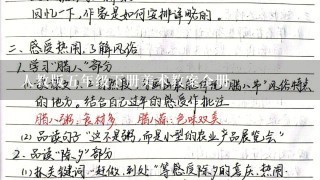 回忆一下,作家是如何安排详略的。
二、感受热闹,了解风俗
1.学习“腊八”部分
人教版五年级下册美术教案全册
的地方。结合自己过年的感受作批注
腊八粥:食材多 腊八蒜:色味双美
(2)品读句子“这不是粥,而是小型的农业产品展览会”
2.品读“除夕”部分
(1)抓关键词“赶做、到处”等感受除夕的喜庆、热闹